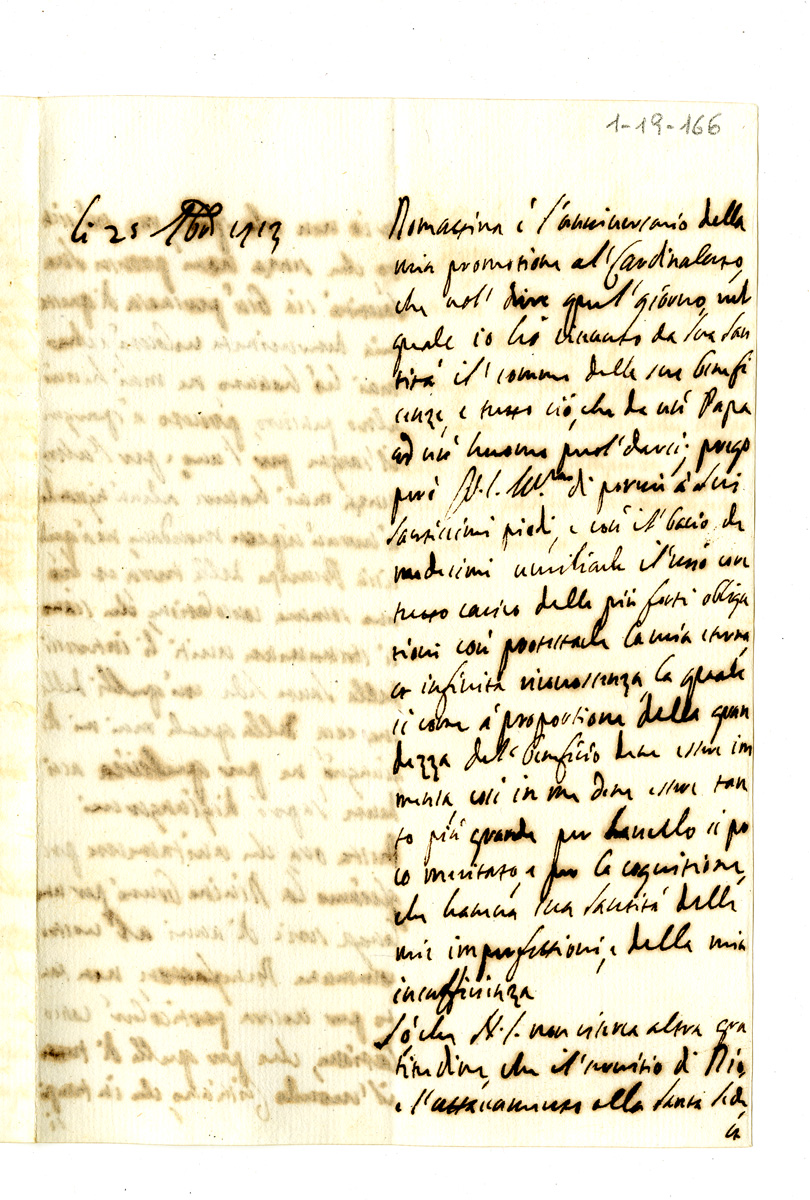 1-19-166
li 25 1713
Domattina è l'anniversario della
mia promotione al' Cardinalato,
che vol' dire quel' giorno, nel
quale io hò riceuuto da Sua San
tità il' comme delle sue benefi
cenze, e tutto ciò, che da un' Papa
ad un' huomo puol' darsi; prego
però V. S. Ill.ma di pormi à suoi
Santissimi piedi, e con il' bacio de
medesimi umiliarle il'
tutto carico delle più forti obliga
tioni con' protestarle la mia eterna,
et infinita riconoscenza la quale
si come à proportione della gran
dezza del' beneficio deve essere im
mensa, così in me deve essere tan
to più grande per hauerlo si po
co meritato, e per la cognitione,
che haueua Sua Santità delle
mie imperfettioni, e della mia
insufficienza
Sò che N. S. non ricerca altra gra
titudine, che il' seruitio di Dio,
e l'attaccamento alla Santa Sede